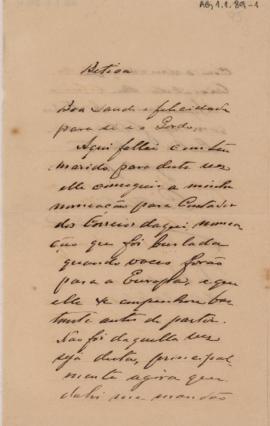 AG, 1.1.89-1
Boa saude e felicidade
para si e o Gordo.
Aqui fallei com teu
marido para desta vez
elle conseguir a minha
nomeação para Contador
dos Correios daqui nomea
ção que foi burlada
quando voces forão
para a Europa, e que
elle se empenhou bas
tante antes de partir.
Não foi daquella vez
seja desta, principal-
mente agora que
dahi me mandão